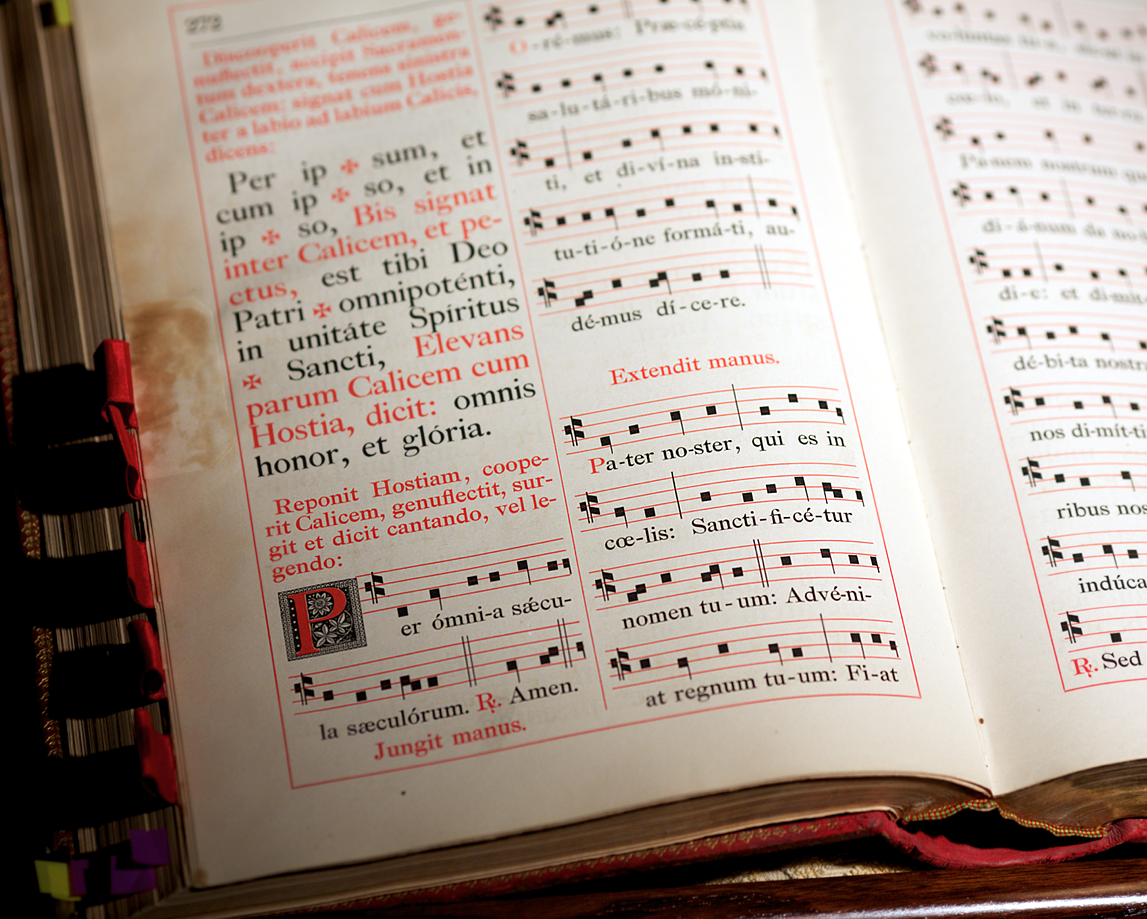 272
Discooperit Calicem, ge-
nuflectit, accipit Sacramen-
tum dextera, tenens sinistra
Calicem: signat cum Hostia
ter a labio ad labium Calicis,
dicens:
Per ip ✠ sum, et
cum ip ✠ so, et in
ip ✠ so, Bis signat
inter Calicem, et pe-
ctus, est tibi Deo
Patri ✠ omnipoténti,
in unitáte Spíritus
✠ Sancti, Elevans
parum Calicem cum
Hostia, dicit: omnis
honor, et glória.
Reponit Hostiam, coope-
rit Calicem, genuflectit, sur-
git et dicit cantando, vel le-
gendo:
Per ómni-a sǽcu-
la sæculórum. ℟. Amen.
Jungit manus.
O-ré-mus: Præ-cé-ptis
sa-lu-tá-ri-bus mó-ni-
ti, et di-ví-na in-sti-
tu-ti-ó-ne formá-ti, au-
dé-mus dí-ce-re.
Extendit manus.
Pa-ter no-ster, qui es in
cœ-lis: Sancti-fi-cé-tur
nomen tu-um: Advé-ni-
at regnum tu-um: Fi-at
cœ-lo, et in
Panem nostrum
di-á-num da
di-e: et di-mí
dé-bi-ta nostr
nos di-mít-ti
ribus nos
indúca
℟. Sed